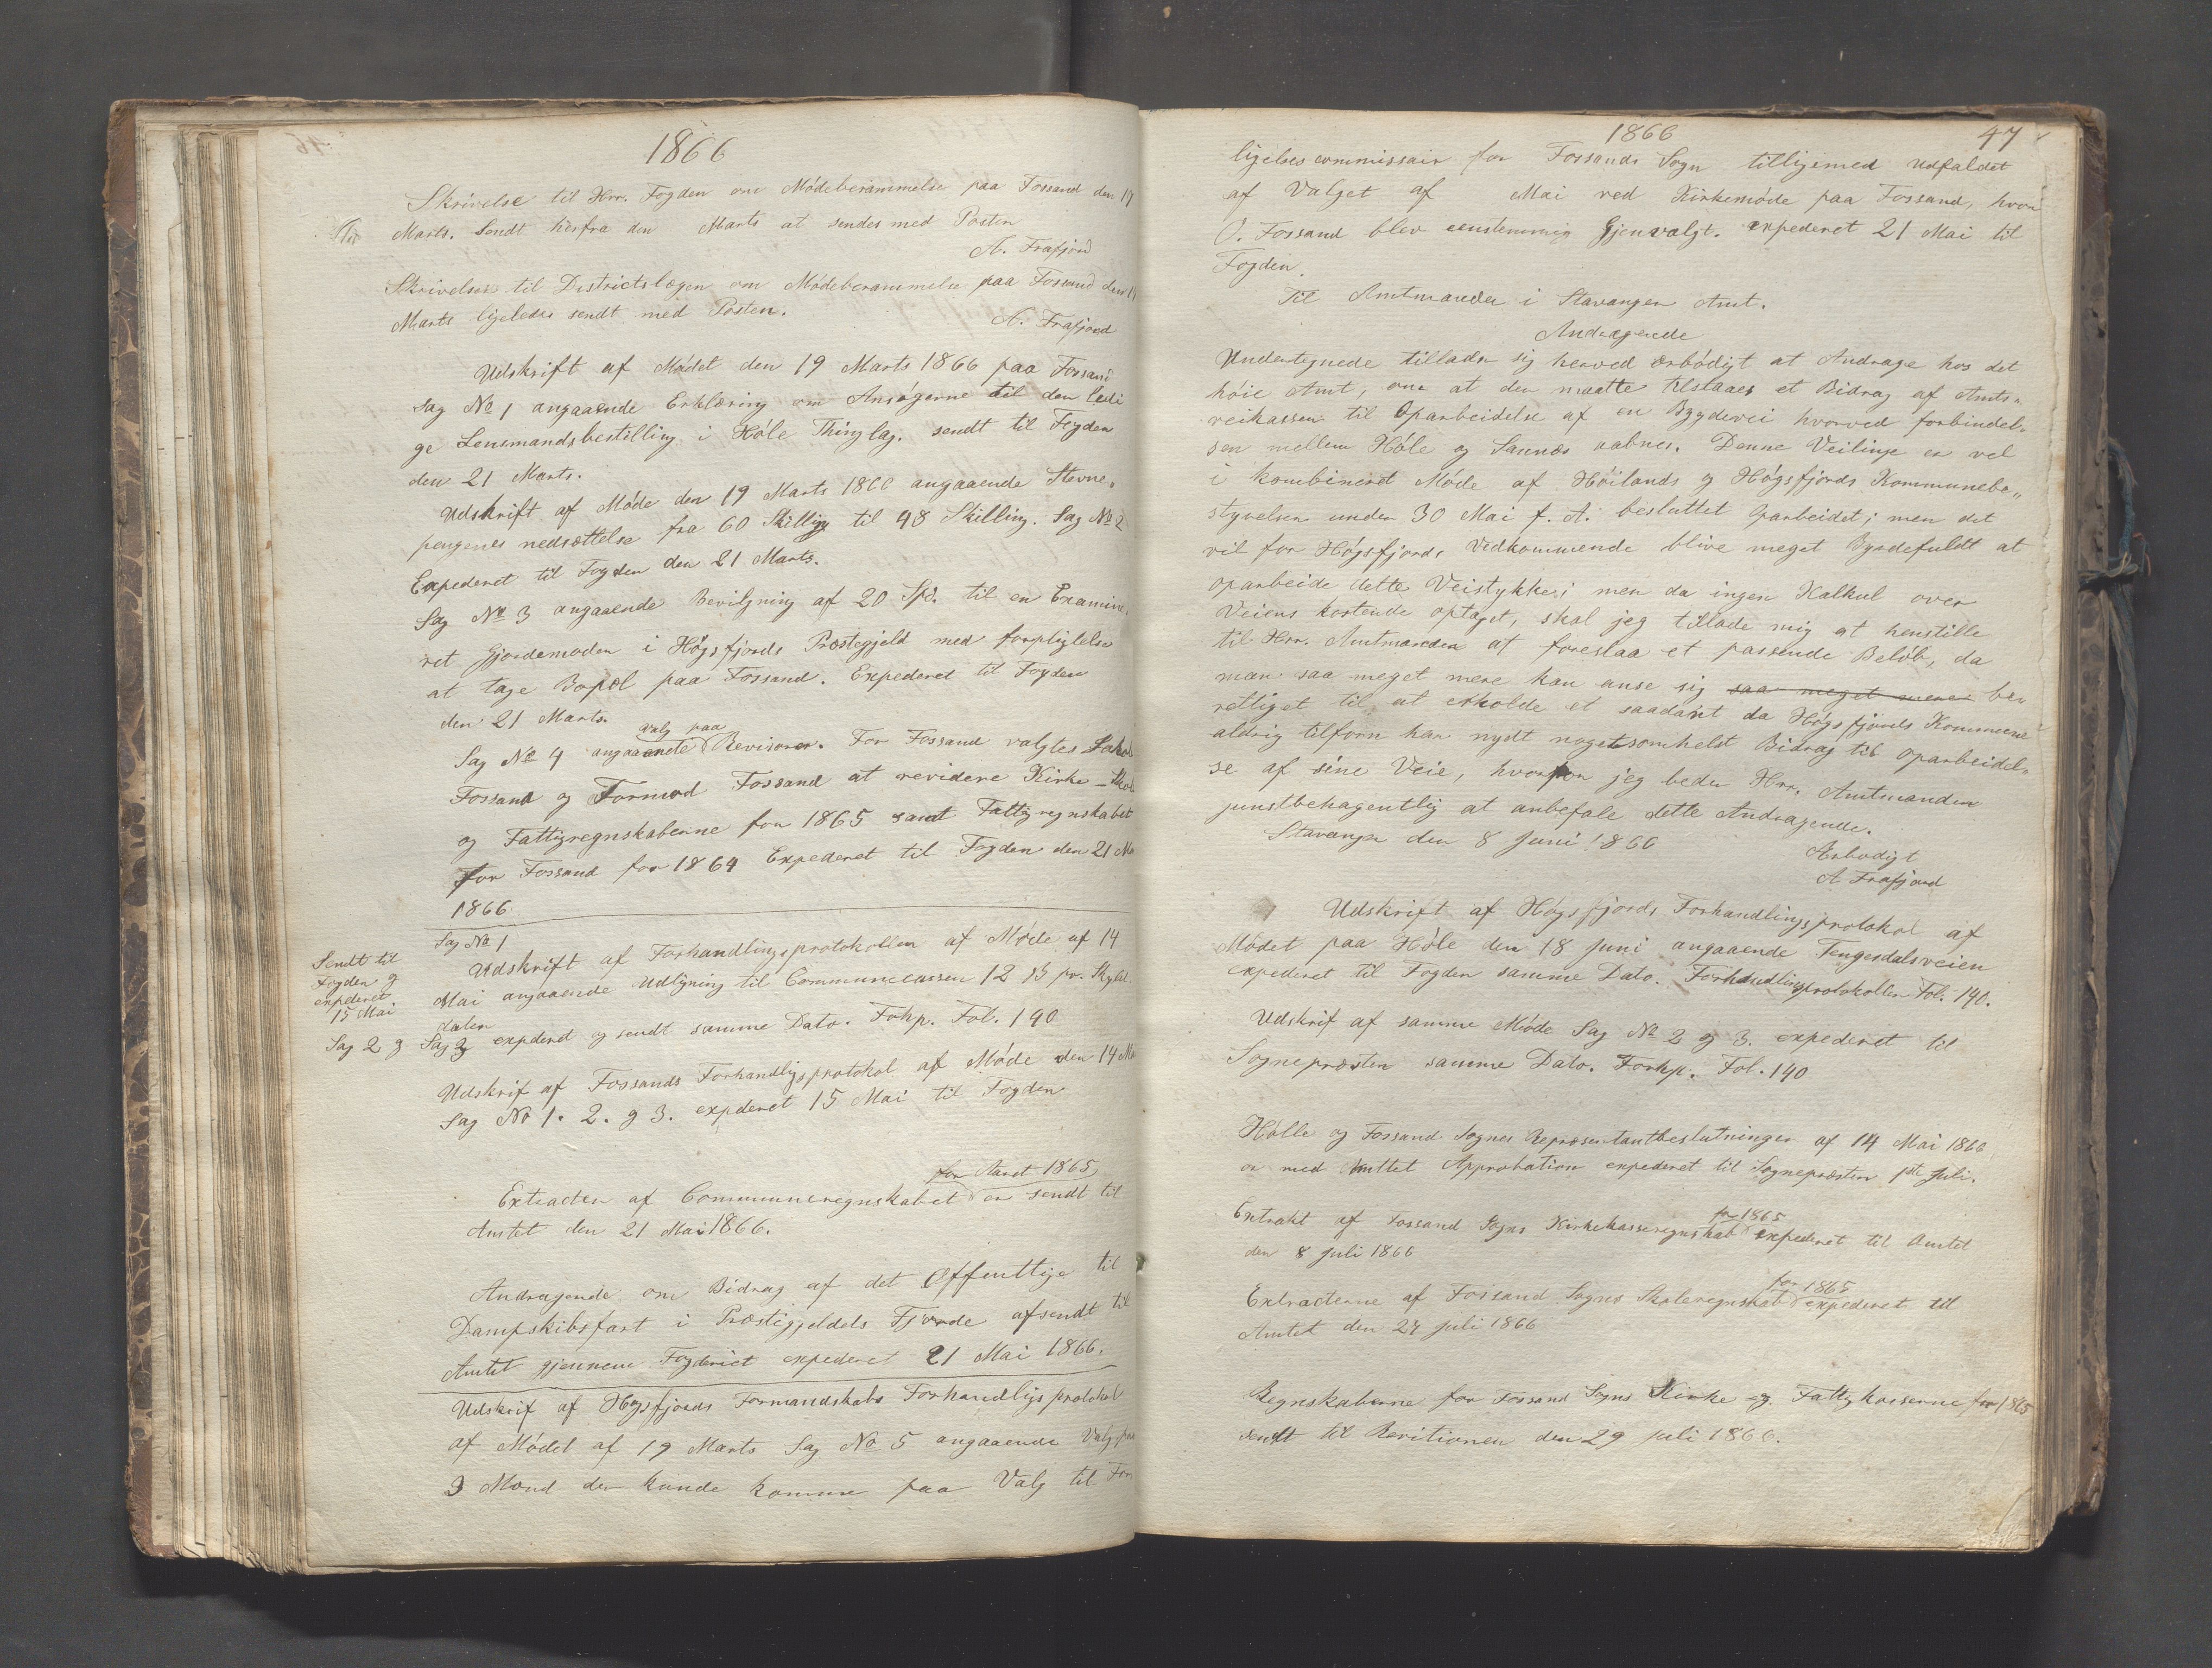 1866
Skrivelse til Hrr. Fogden om Mödeberammelse paa Fossand den 19
Marts. Sendt herfra den Marts at sendes med Posten
A. Frafjord
Skrivelse til Districtslægen om Mödeberammelse paa Fossand den 19
Marts ligeledes sendt med Posten.
A. Frafjord
Udskrift af Mödet den 19 Marts 1866 paa Fossand
Sag No 1 angaaende Erklæring om Ansögerne til den ledi
ge Lensmandsbestilling i Höle Thinglag. sendt til Fogden
den 21 Marts.
Udskrift af Möde den 19 Marts 1866 angaaende Stevne„
pengenes nedsættelse fra 60 Skilling til 48 Skilling. Sag No 2
Expederet til Fogden den 21 Marts.
Sag No 3 angaaende Bevilgning af 20 Spd. til en Examine„
ret Gjordemoder i Högsfjords Præstegjeld med forpligtelse
at tage Bopel paa Fossand. Expederet til Fogden
den 21 Marts.
valg paa
Sag No 4 angaaende Revisorer. For Fossand valgtes Jakob
Fossand og Tormod Fossand at revidere Kirke-Skole
og Fattigregnskaberne for 1865 samt Fattigregnskabet
for Fossand for 1864 Expederet til Fogden den 21 Ma
1866
Sag No 1
Udskrift af Forhandlingsprotokollen af Möde af 14
Sendt til
Fogden og
expederet
15 Mai
Mai angaaende Udligning til Communecassen 12 ß pr. Skyld
daler
Sag 2 og Sag 3 expederet og sendt samme Dato. Fohp. Fol. 190
Udskrif af Fossands Forhandligsprotokol af Möde den 14 Ma
Sag No 1. 2. g 3. expderet 15 Mai til Fogden
for Aaret 1865
Extracten af Communeregnskabet er sendt til
Amtet den 21 Mai 1866.
Andragende om Bidrag af det Offenttige til
Dampskibsfart i Præstigjeldets Fjorde afsendt til
Amtet gjennem Fogderiet expederet 21 Mai 1866.
Udskrif af Högsfjords Formandskabs Forhandligsprotokol
af Mödet af 19 Marts Sag No 5 angaaende Valg paa
3 Mænd der kunde komme paa Valg til For
1866
47
ligelses commissair for Fossands Sogn tilligemed Udfaldet
af Valget af Mai ved Kirkemöde paa Fossand, hvor
O. Fossand blev eenstemmig Gjenvalgt. expederet 21 Mai til
Fogden.
Til Amtmanden i Stavanger Amt.
Andragende
Undertegnede tillader sig herved ærbödigt at Andrage hos det
höie Amt, om at der maatte tilstaaes et Bidrag af Amts„
veikassen til Oparbeidelse af en Bygdevei hvorved forbindel„
sen mellem Höle og Sannæs aabnes. Denne Veilinje er vel
i kombineret Möde af Höilands og Högsfjords Kommunebe„
styrelsen under 30 Mai f. A. besluttet oparbeidet; men det
vil for Högsfjords Vedkommende blive meget Byrdefuldt at
oparbeide dette Veistykke; men da ingen Kalkul over
Veiens kostende optaget, skal jeg tillade mig at henstille
til Hrr. Amtmanden at foreslaa et passende Belöb, da
man saa meget mere kan anse sig saa meget mere be„
rettiget til at erholde et saadant da Högsfjords Kommune
aldrig tilforn har nydt nogetsomhelst Bidrag til Oparbeidel„
se af sine Veie, hvorfor jeg beder Hrr. Amtmanden
gunstbehagentlig at anbefale dette Andragende.
Stavanger den 8 Juni 1866
Ærbodigt
A Frafjord
Udskrift af Högsfjords Forhandlingsprotokol af
Mödet paa Höle den 18 Juni angaaende Tengesdalsveien
expederet til Fogden samme Dato. Forhandlingsprotokollen Fol. 190.
Udskrif af samme Möde Sag No 2 og 3. expederet til
Sognepræsten samme Dato. Forhp. Fol. 190
Hölle og Fossand Sognes Repræsentantbeslutninger af 14 Mai 1866
er med Amttet Approbation expederet til Sognepræsten 1ste Juli.
for 1865
Extrakt af Fossand Sogns Kirkekasseregnskab expederet til Amtet
den 8 Juli 1866
for 1865
Extracterne af Fossand Sogns Skoleregnskab expederet til
Amtet den 27 Juli 1866
Regnskaberne for Fossand Sogns Kirke og Fattigkasserne for 1865
sendt til Revitionen den 29 Juli 1866.